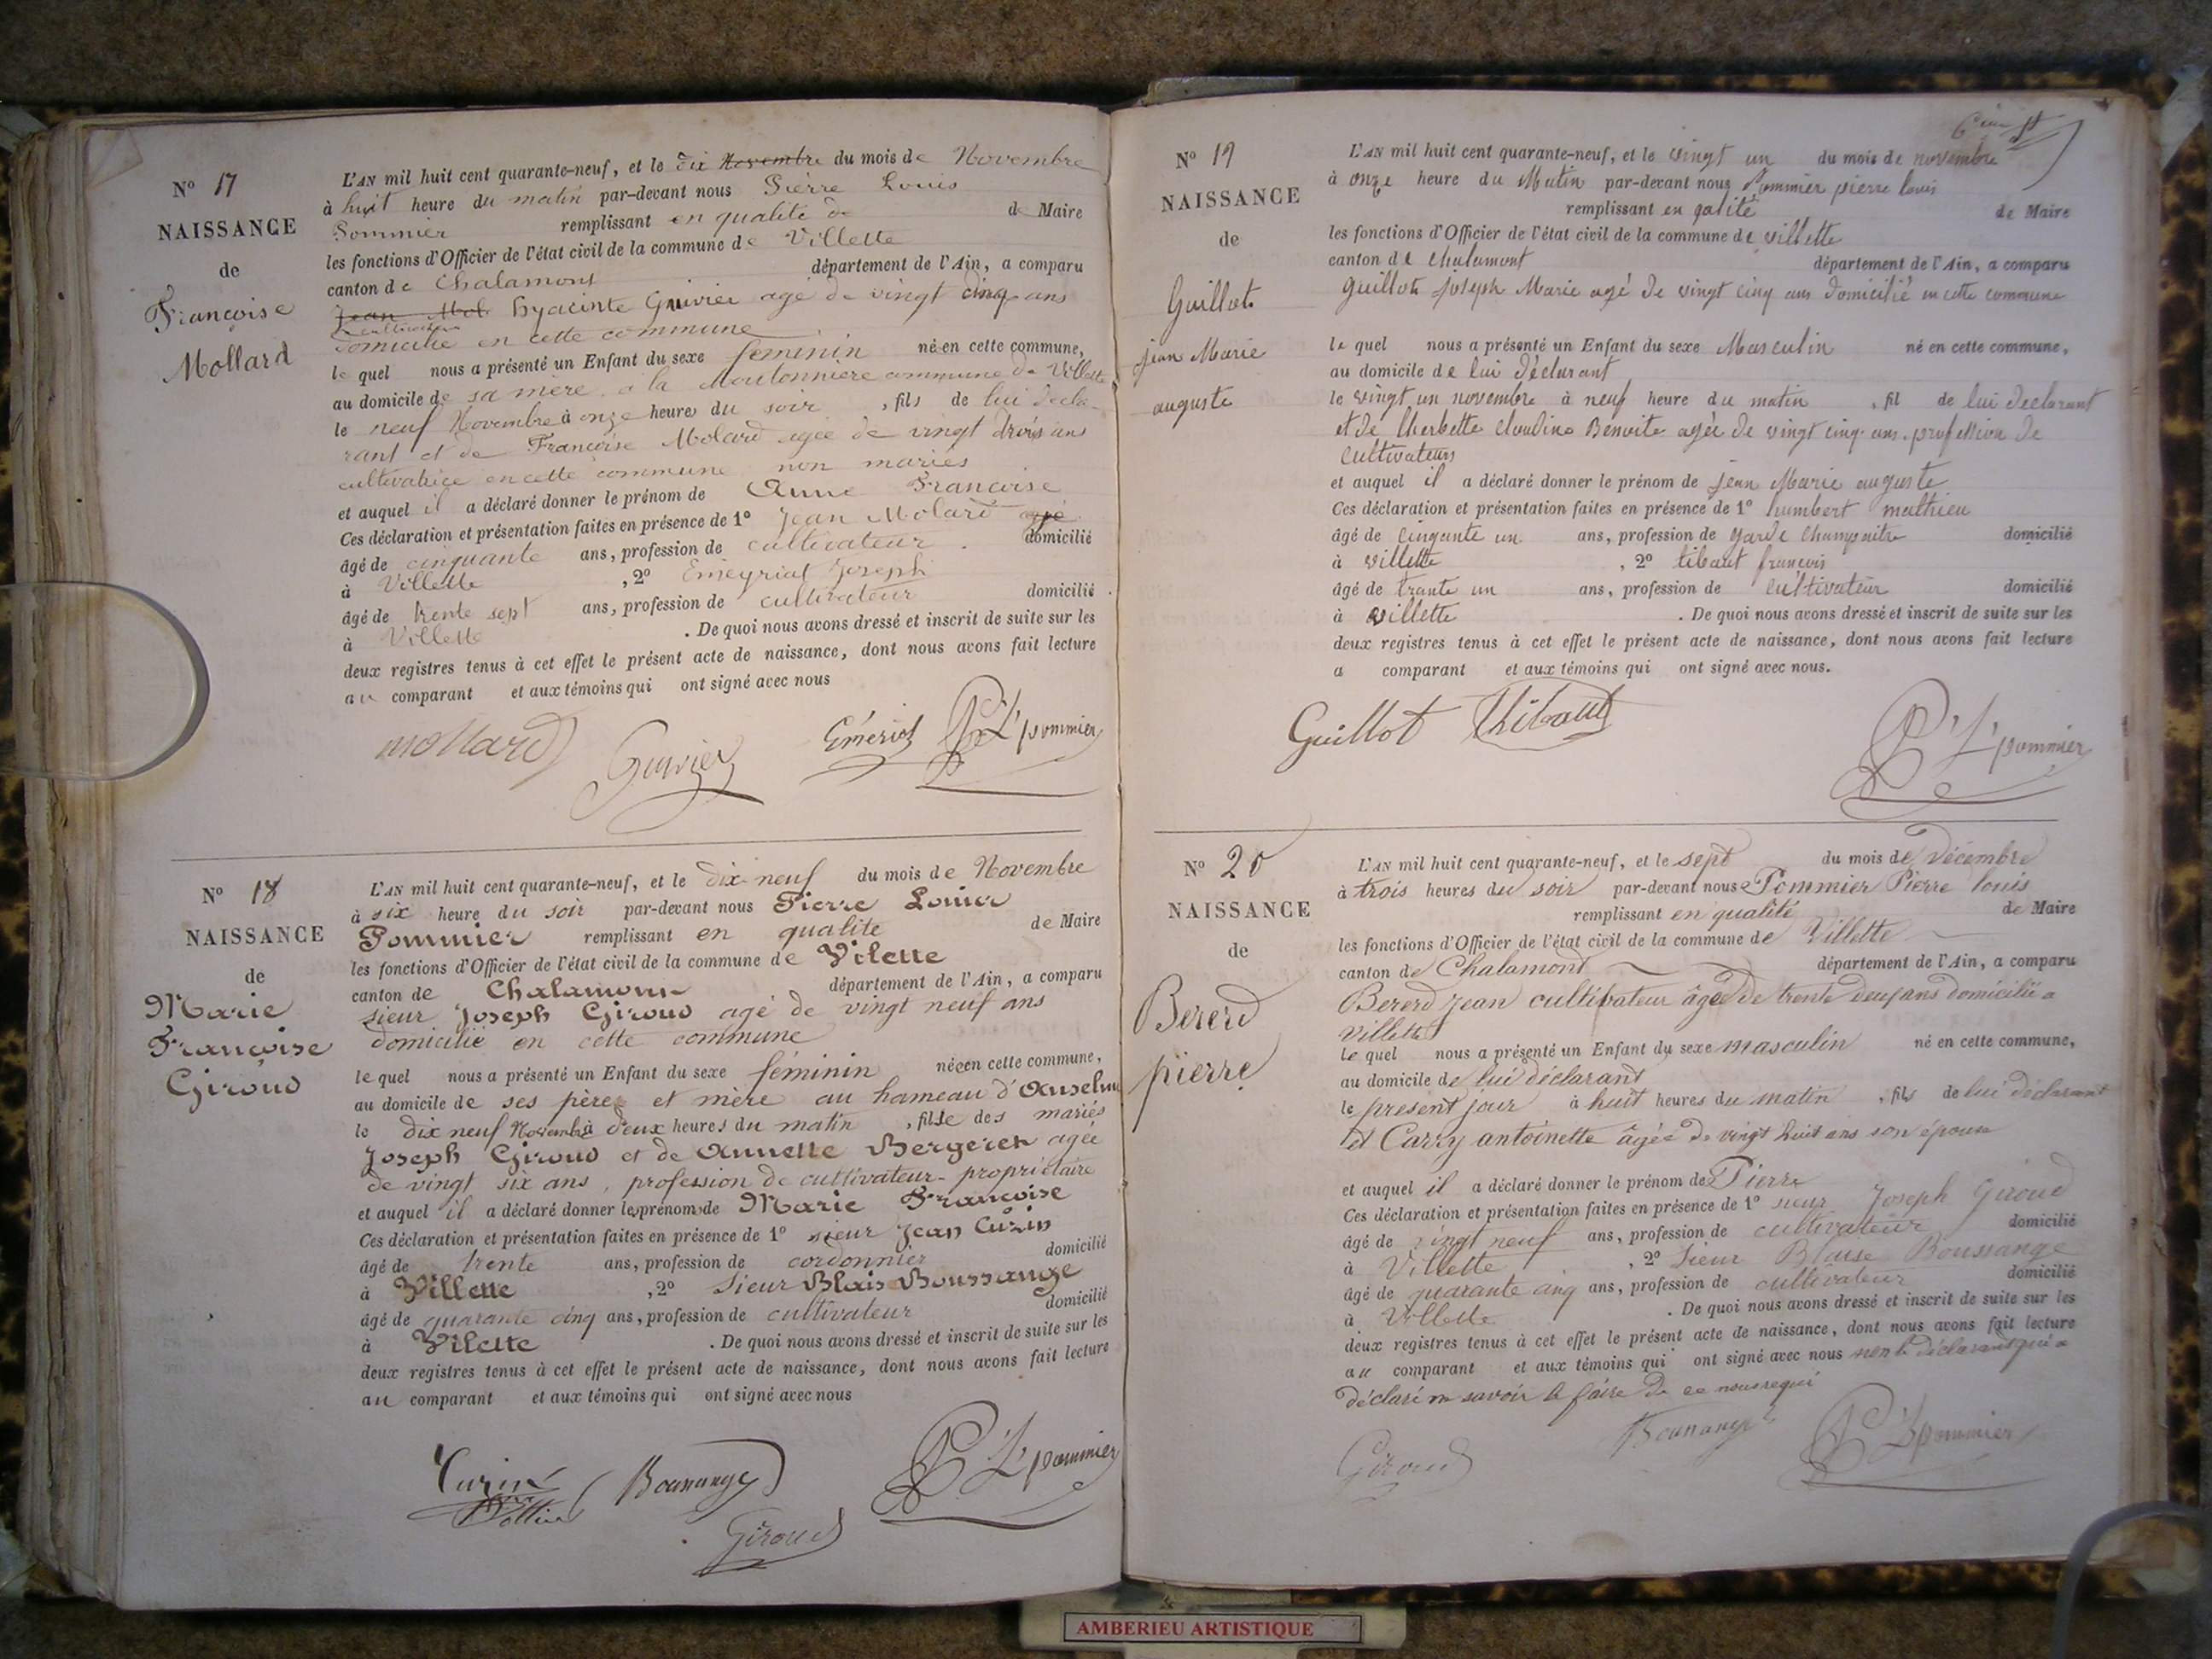 Nº 17
NAISSANCE
de
Françoise
Mollard
L'AN mil huit cent quarante-neuf, et le dix Novembre du mois de Novembre
à huit heure du matin par-devant nous Pierre Louis
Pommier remplissant en qualité de de Maire
les fonctions d'Officier de l'état civil de la commune de Villette
canton de Chalamont département de l'Ain, a comparu
Jean Mol hyacinte Guivier agé de vingt cinq ans
cultivateur
domicilié en cette commune
le quel nous a présenté un Enfant du sexe féminin né en cette commune,
au domicile de sa mère a la Moutonnière commune de Villette
le neuf Novembre à onze heures du soir, fils de lui décla-
rant et de Françoise Molard agée de vingt trois ans
cultivatrice en cette commune non mariés
et auquel il a déclaré donner le prénom de Anne Françoise
Ces déclaration et présentation faites en présence de 1º Jean Molard agé
âgé de cinquante ans, profession de cultivateur domicilié
à Villette, 2º Emeyriat Joseph
âgé de trente sept ans, profession de cultivateur domicilié
à Villette. De quoi nous avons dressé et inscrit de suite sur les
deux registres tenus à cet effet le présent acte de naissance, dont nous avons fait lecture
au comparant et aux témoins qui ont signé avec nous
mollard Guivier Emériat P L pommier
Nº 18
NAISSANCE
de
Marie
Françoise
Giroud
L'AN mil huit cent quarante-neuf, et le dix-neuf du mois de Novembre
à six heure du soir par-devant nous Pierre Louis
Pommier remplissant en qualité de Maire
les fonctions d'Officier de l'état civil de la commune de Vilette
canton de Chalamont département de l'Ain, a comparu
sieur Joseph Giroud agé de vingt neuf ans
domicilié en cette commune
le quel nous a présenté un Enfant du sexe féminin née en cette commune,
au domicile de ses père et mère au hameau d'Anselme
le dix neuf Novembre à deux heures du matin, fille des mariés
Joseph Giroud et de Annette Bergeret agée
de vingt six ans, profession de cultivateur-propriétaire
et auquel il a déclaré donner les prénoms de Marie Françoise
Ces déclaration et présentation faites en présence de 1º sieur Jean Curin
âgé de trente ans, profession de cordonnier domicilié
à Villette, 2º Sieur Blais Boussange
âgé de quarante cinq ans, profession de cultivateur domicilié
à Vilette. De quoi nous avons dressé et inscrit de suite sur les
deux registres tenus à cet effet le présent acte de naissance, dont nous avons fait lecture
au comparant et aux témoins qui ont signé avec nous
Curin Boussange P L pommier
Giroud
Nº 19
NAISSANCE
de
Guillot
jean Marie
auguste
L'AN mil huit cent quarante-neuf, et le vingt un du mois de novembre
à onze heure du Matin par-devant nous Pommier pierre louis
remplissant en qalité de Maire
les fonctions d'Officier de l'état civil de la commune de villette
canton de chalamont département de l'Ain, a comparu
guillot joseph Marie agé de vingt cinq ans domicilié en cette commune
le quel nous a présenté un Enfant du sexe Masculin né en cette commune,
au domicile de lui déclarant
le vingt un novembre à neuf heure du matin, fil de lui declarant
et de Cherbette Claudine Benoite agée de vingt cinq ans. profession de
cultivateurs
et auquel il a déclaré donner le prénom de jean Marie auguste
Ces déclaration et présentation faites en présence de 1º humbert mathieu
âgé de cinqante un ans, profession de garde champaitre domicilié
à villette, 2º tibaut francois
âgé de trante un ans, profession de cultivateur domicilié
à villette. De quoi nous avons dressé et inscrit de suite sur les
deux registres tenus à cet effet le présent acte de naissance, dont nous avons fait lecture
a comparant et aux témoins qui ont signé avec nous.
Guillot Thibaut P L pommier
Nº 20
NAISSANCE
de
Bererd
pierre
L'AN mil huit cent quarante-neuf, et le sept du mois de Décembre
à trois heures du soir par-devant nous Pommier Pierre louis
remplissant en qualité de Maire
les fonctions d'Officier de l'état civil de la commune de Villette
canton de Chalamont département de l'Ain, a comparu
Bererd jean cultivateur âgé de trente deux ans domicilié a
villette
le quel nous a présenté un Enfant du sexe masculin né en cette commune,
au domicile de lui déclarant
le present jour à huit heures du matin, fils de lui déclarant
et Carry antoinette âgée de vingt huit ans son épouse
et auquel il a déclaré donner le prénom de Pierre
Ces déclaration et présentation faites en présence de 1º sieur Joseph Giroud
âgé de vingt neuf ans, profession de cultivateur domicilié
à Villette, 2º Sieur Blaise Boussange
âgé de quarante cinq ans, profession de cultivateur domicilié
à Villette. De quoi nous avons dressé et inscrit de suite sur les
deux registres tenus à cet effet le présent acte de naissance, dont nous avons fait lecture
au comparant et aux témoins qui ont signé avec nous non le déclarant qui a
déclaré ne savoir le faire de ce nous requi
Giroud Boussange P L pommier
AMBERIEU ARTISTIQUE